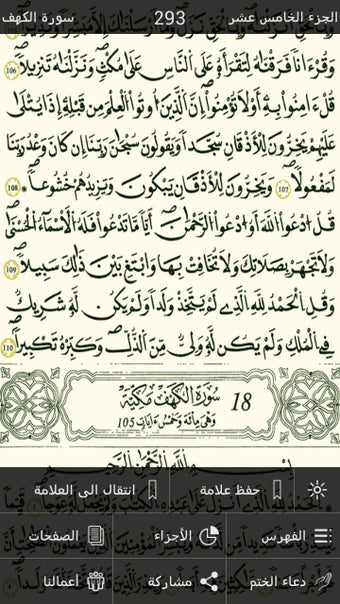 الجزء الخامس عشر 293 سورة الكهف
وَقُرْءَاناً فَرَقْنَٰهُ لِتَقْرَأَهُۥ عَلَى ٱلنَّاسِ عَلَىٰ مُكْثٍ وَنَزَّلْنَٰهُ تَنزِيلاً 106
قُلَ اٰمِنُواْ بِهِۦٓ أَوْ لَا تُؤْمِنُوٓاْ إِنَّ ٱلَّذِينَ أُوتُواْ ٱلْعِلْمَ مِن قَبْلِهِۦٓ إِذَا يُتْلَىٰ
عَلَيْهِمْ يَخِرُّونَ لِلْأَذْقَانِ سُجَّداً وَيَقُولُونَ سُبْحَٰنَ رَبِّنَآ إِن كَانَ وَعْدُ رَبِّنَا
لَمَفْعُولاً 107 وَيَخِرُّونَ لِلْأَذْقَانِ يَبْكُونَ وَيَزِيدُهُمْ خُشُوعاً 108
قُلُ ادْعُواْ ٱللَّهَ أَوُ ادْعُواْ ٱلرَّحْمَٰنَ أَيّاً مَّا تَدْعُواْ فَلَهُ ٱلْأَسْمَآءُ ٱلْحُسْنَىٰ
وَلَا تَجْهَرْ بِصَلَاتِكَ وَلَا تُخَافِتْ بِهَا وَٱبْتَغِ بَيْنَ ذَٰلِكَ سَبِيلاً 109
وَقُلِ ٱلْحَمْدُ لِلَّهِ ٱلَّذِي لَمْ يَتَّخِذْ وَلَداً وَلَمْ يَكُن لَّهُۥ شَرِيكٌ
فِي ٱلْمُلْكِ وَلَمْ يَكُن لَّهُۥ وَلِيٌّ مِّنَ ٱلذُّلِّ وَكَبِّرْهُ تَكْبِيراً 110
سُورَةُ الْكَهْفِ مَكِّيَّة 18
وَهْيَ مِائَة وَخَمْسُ ءَايَات 105
بِسْمِ ٱللَّهِ ٱلرَّحْمَٰنِ ٱلرَّحِيمِ
حفظ علامة
انتقال الى العلامة
الفهرس
الأجزاء
الصفحات
دعاء الختم
مشاركة
أعمالنا